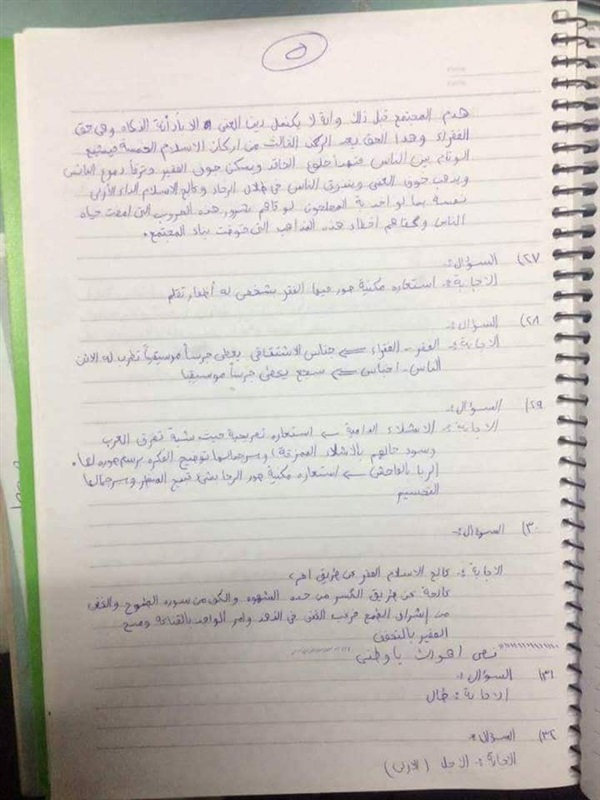 ٥
هدم المجتمع قبل ذلك وانه لا يكتمل دين الغنى الا بأدائه الزكاه وهى حق
الفقراء وهذا الحق يعد الركن الثالث من اركان الاسلام الخمسة فيشيع
الوئام بين الناس فتهدأ الحاقد ويسكن جوف الفقير وترقأ دموع البائس
ويذهب خوف الغنى ويشرق الناس فى ظلال الرخاء وعالج الاسلام الداء الأزلى
نفسة بما لو اخذ به المصلحون لوقاهم شرور هذه الحروب التى حياة
الناس وكفاهم اخطار هذه المذاهب التى بناء المجتمع.
٢٧) السؤال:
الاجابة: استعاره مكنية صور فيها الفقر بشخص له أظفار تقلم
٢٨) السؤال:
الاجابة: الفقر - الفقراء ⇐ جناس الاشتقاقى يعطى جرساً موسيقياً تطرب له الاذن
الناس - اجناس ⇐ سجع يعطى جرساً موسيقيا
٢٩) السؤال:
الاجابة: الاشلاء الدامية ⇐ استعاره تصريحية حيث شبة تفرق العرب
وسوء حالهم بالاشلاء الممزقة، وسر جمالها توضيح الفكره برسم صوره لها.
الربا بالفاحش ⇐ استعاره مكنية صور الربا وسر جمالها
التجسيم
٣٠) السوال:
الاجابة: عالج الاسلام الفقر عن طريق اهم:
عالجة عن طريق الكسر من حده الشهوه والكف من سوره الطموح والغض
من إشراف الطمع فرغب الغنى فى الزهد وامر الواجد بالقناعة ومنح
الفقير بالتعفف
نص اهواك ياوطنى
٣١) السؤال:
الاجابة: ظال
٣٢) السؤال:
الاجابة: الاجل (الاولى)